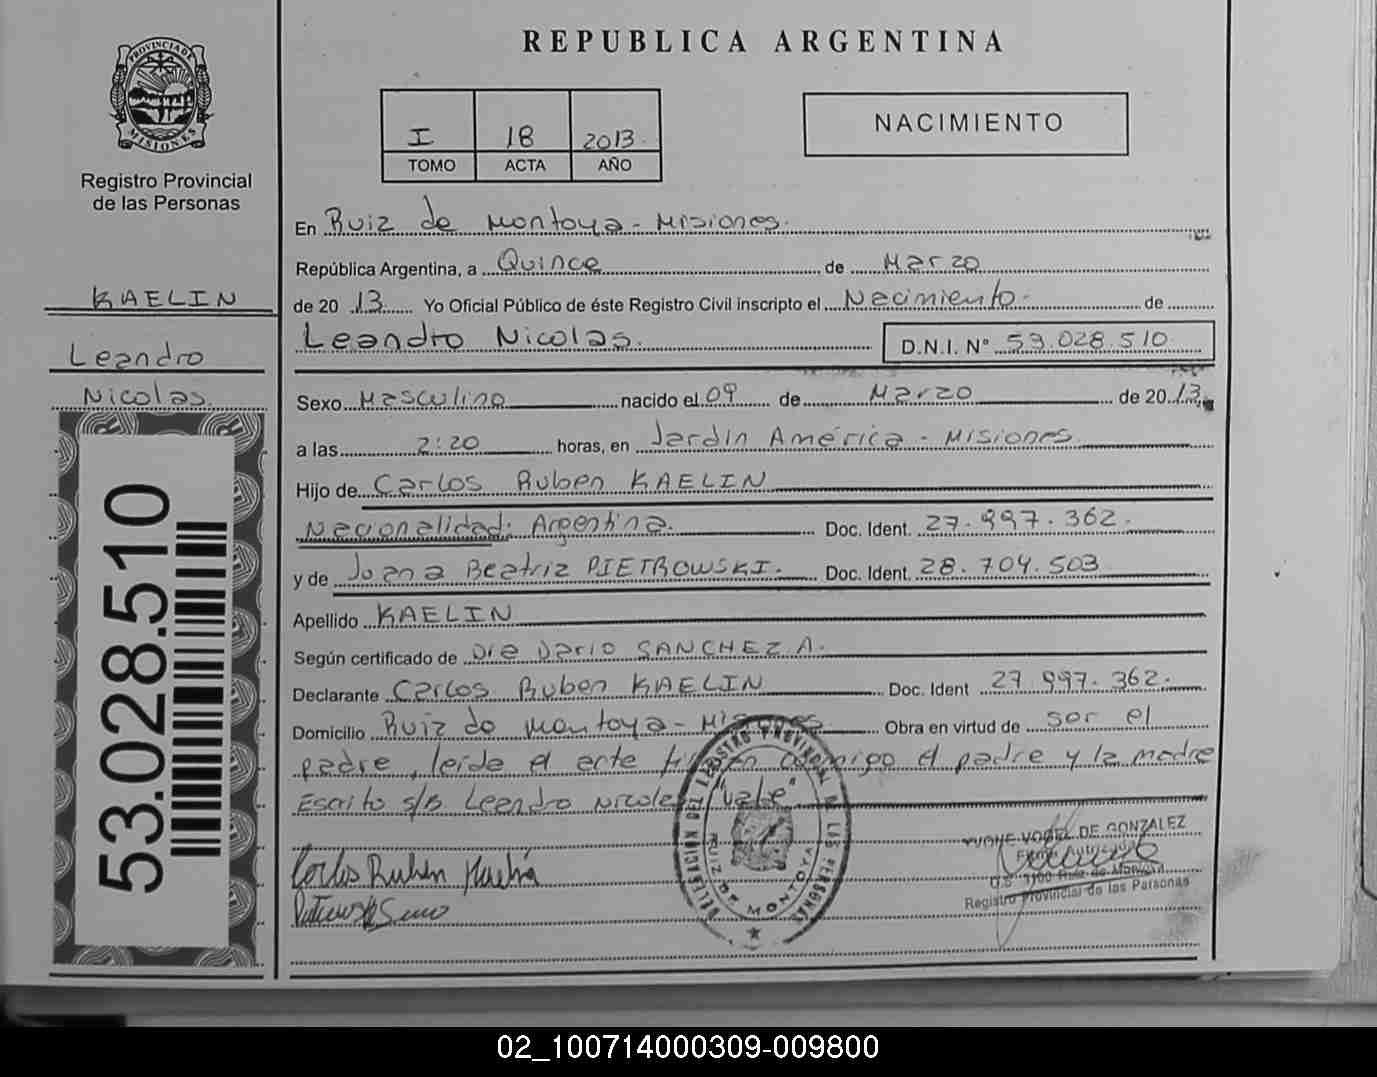 REPUBLICA ARGENTINA
PROVINCIA DE MISIONES
Registro Provincial
de las Personas
I 18 2013
TOMO ACTA AÑO
NACIMIENTO
KAELIN
Leandro
Nicolas.
53.028.510
En Ruiz de Montoya - Misiones.
República Argentina, a Quince de Marzo
de 2013 Yo Oficial Público de éste Registro Civil inscripto el Nacimiento de
Leandro Nicolas. D.N.I. N° 53.028.510
Sexo Masculino nacido el 09 de Marzo de 2013
a las 2:20 horas, en Jardín América - Misiones
Hijo de Carlos Ruben KAELIN
Nacionalidad: Argentina. Doc. Ident. 27.997.362.
y de Juana Beatriz PIETROWSKI. Doc. Ident. 28.704.503
Apellido KAELIN
Según certificado de Dario SANCHEZ A.
Declarante Carlos Ruben KAELIN Doc. Ident 27.997.362.
Domicilio Ruiz de Montoya - Misiones Obra en virtud de ser el
padre, leída el acta firman conmigo el padre y la madre
Escrito s/b Leandro Nicolas "Vale"
DELEGACION DEL REGISTRO PROVINCIAL DE LAS PERSONAS
RUIZ DE MONTOYA
Carlos Ruben Kaelin
YVONE VOGEL DE GONZALEZ
Registro Provincial de las Personas
02_100714000309-009800